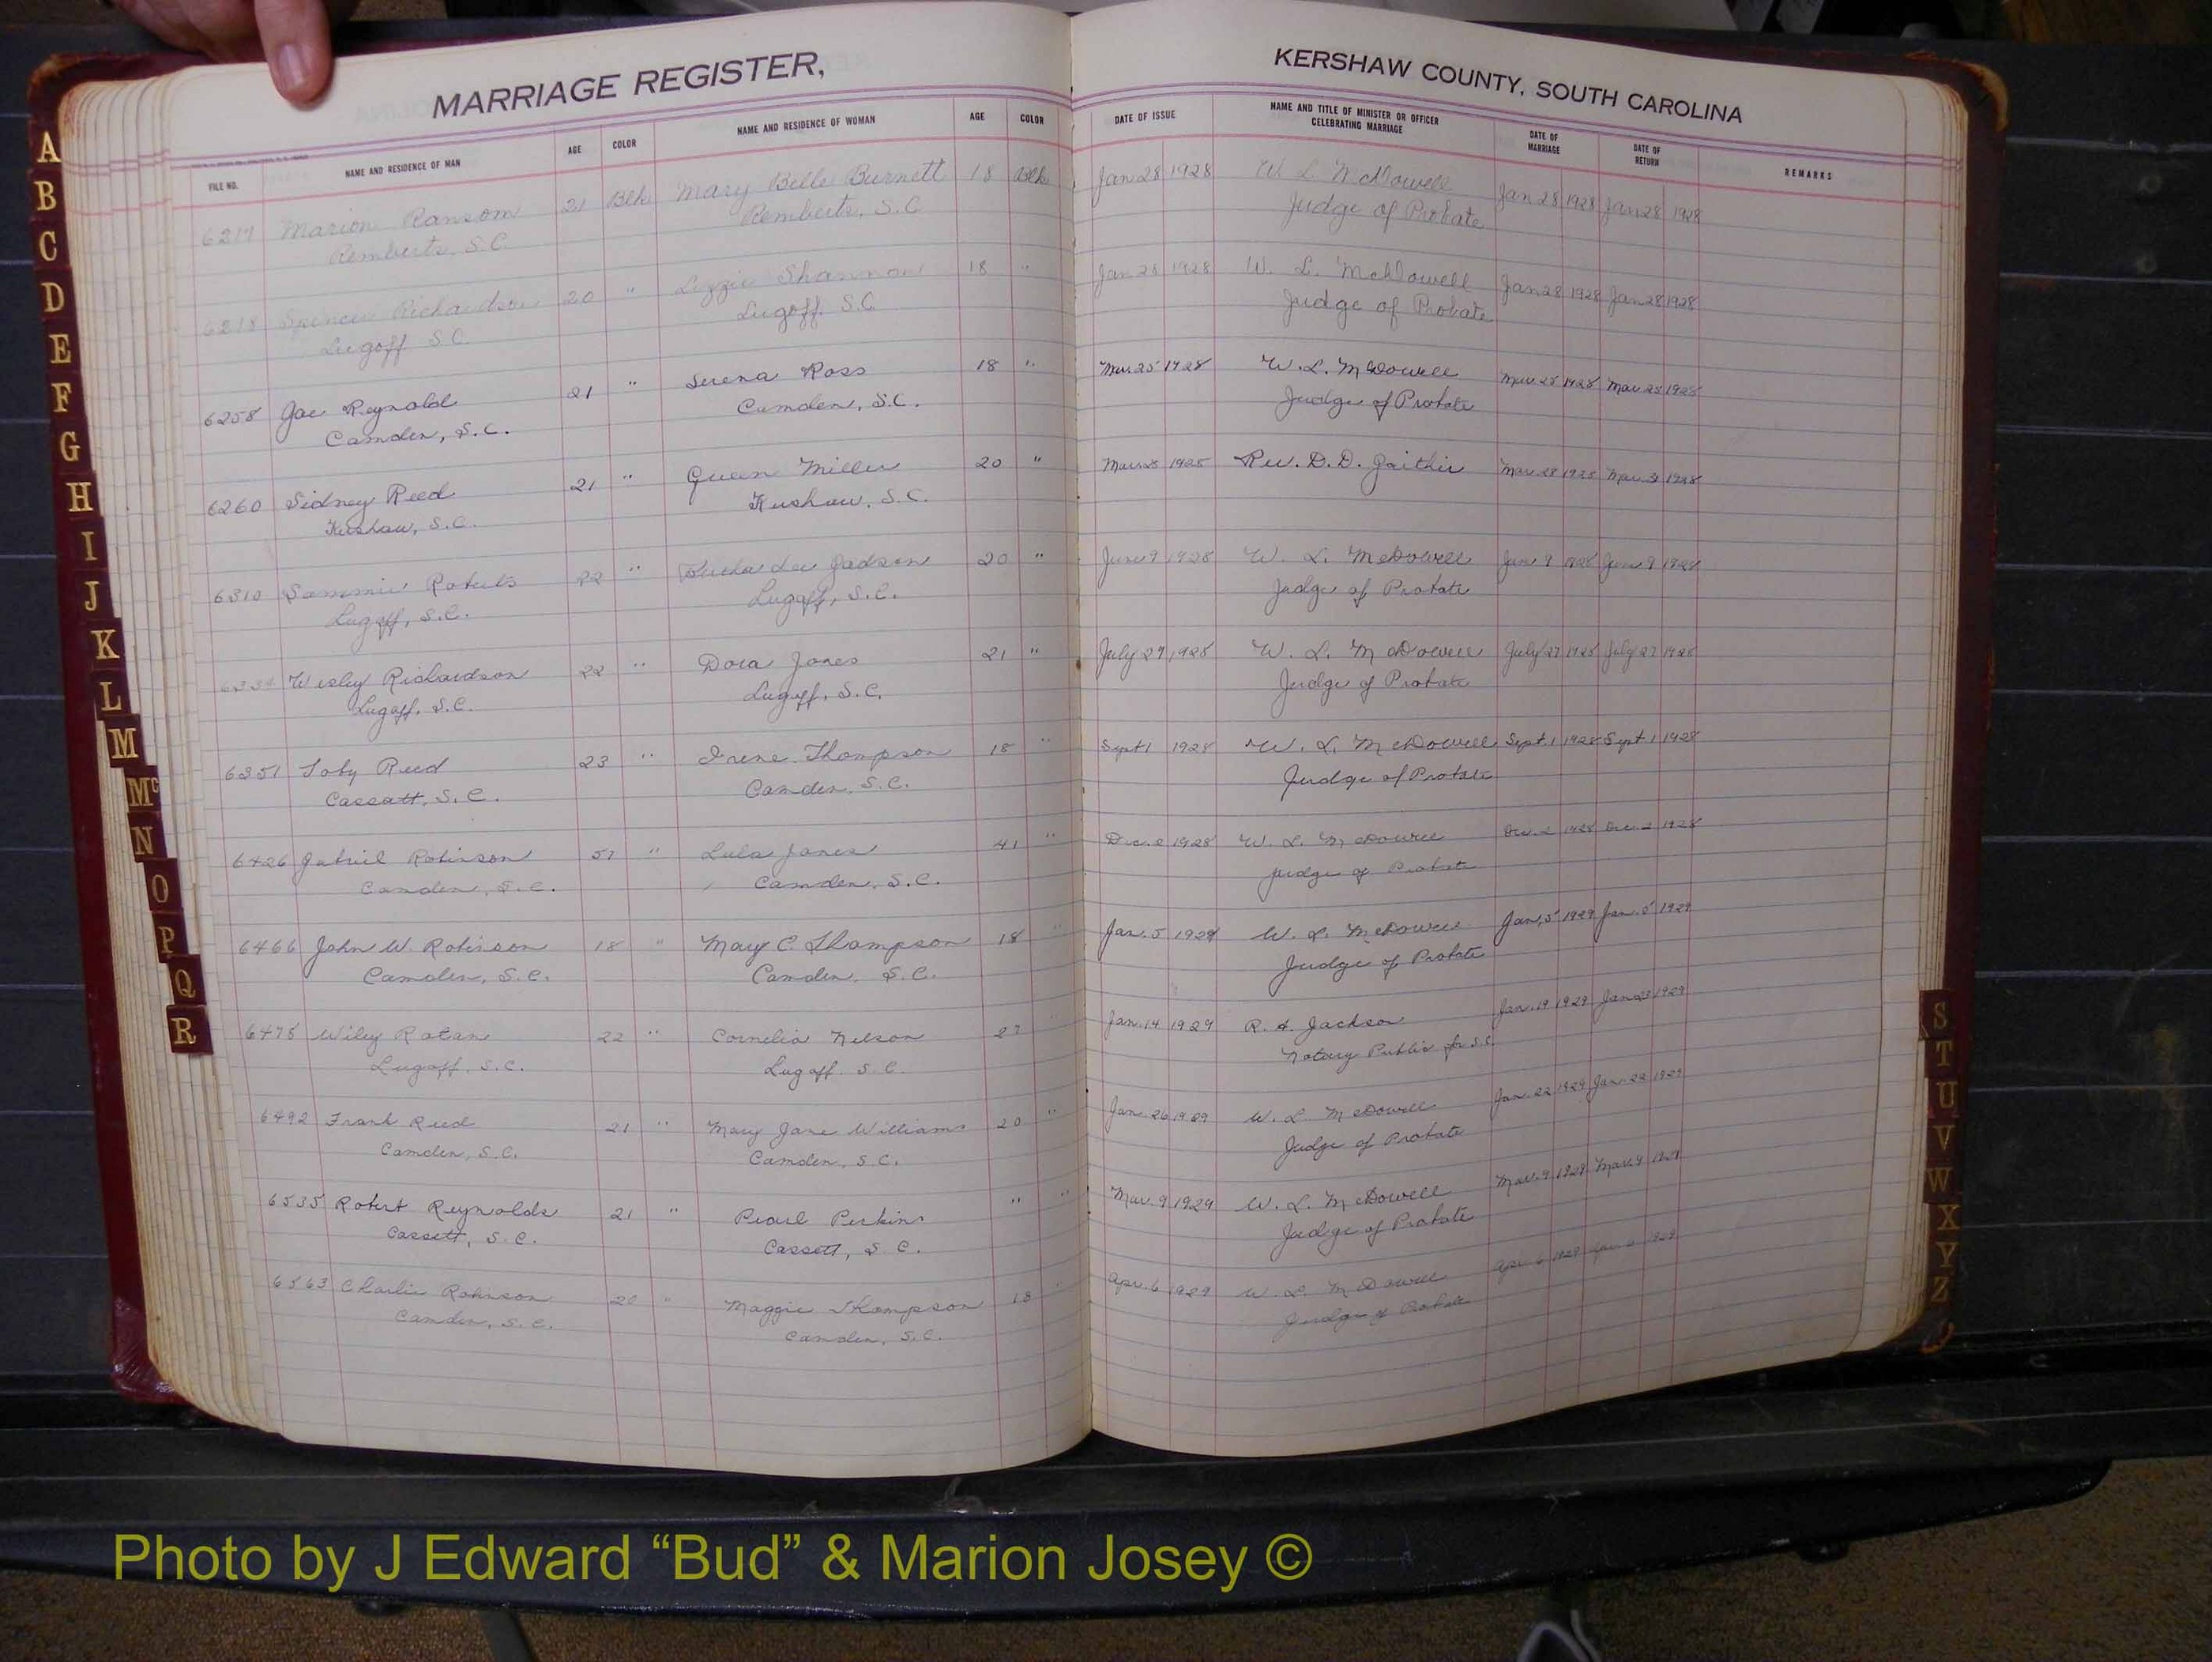 MARRIAGE REGISTER,
KERSHAW COUNTY, SOUTH CAROLINA
FILE NO. NAME AND RESIDENCE OF MAN AGE COLOR NAME AND RESIDENCE OF WOMAN AGE COLOR DATE OF ISSUE NAME AND TITLE OF MINISTER OR OFFICER CELEBRATING MARRIAGE DATE OF MARRIAGE DATE OF RETURN REMARKS
6217 Marion Ransom 21 Blk Mary Belle Burnett 18 Blk Jan 28 1928 W L McDowell Jan 28 1928 Jan 28 1928
Remberts, S.C. Remberts, S.C Judge of Probate
6218 Spencer Richardson 20 " Lizzie Shannon 18 " Jan 28 1928 W. L. McDowell Jan 28 1928 Jan 28 1928
Lugoff S.C. Lugoff, S.C Judge of Probate
6258 Joe Reynold 21 " Serena Ross 18 " Mar. 25 1928 W. L. McDowell Mar. 25 1928 Mar. 25 1928
Camden, S.C. Camden, S.C. Judge of Probate
6260 Sidney Reed 21 " Queen Miller 20 " Mar. 1928 Rev. D. D. Gaither Mar. 28 1928 Mar. 31 1928
Kershaw, S.C. Kershaw, S.C.
6310 Sammie Roberts 22 " Bertha Lee Jadson 20 " June 9 1928 W. L. McDowell June 9 1928 June 9 1928
Lugoff, S.C. Lugoff, S.C. Judge of Probate
Wesley Richardson 22 " Dora Jones 21 " July 27 1928 W. L. McDowell July 27 1928 July 27 1928
Lugoff, S.C. Lugoff, S.C. Judge of Probate
6351 Toby Reed 23 " Irene Thompson 18 " Sept 1 1928 W. L. McDowell Sept. 1 1928 Sept. 1 1928
Cassatt, S.C. Camden, S.C. Judge of Probate
6426 Gabriel Robinson 57 " Lula Jones 41 " Dec. 2 1928 W. L. McDowell Dec. 2 1928 Dec. 2 1928
Camden, S.C. Camden, S.C. Judge of Probate
6466 John W. Robinson 18 " May C. Thompson 18 " Jan. 5 1929 W. L. McDowell Jan. 5 1929 Jan. 5 1929
Camden, S.C. Camden, S.C. Judge of Probate
6475 Wiley Ratan 22 " Cornelia Nelson 27 " Jan. 14 1929 R. A. Jackson Jan. 19 1929 Jan 23 1929
Lugoff, S.C. Lugoff S.C. Notary Public for S.C.
6492 Frank Reed 21 " Mary Jane Williams 20 " Jan. 26 1929 W. L. McDowell Jan. 22 1929 Jan. 22 1929
Camden, S.C. Camden, S.C. Judge of Probate
6535 Robert Reynolds 21 " Pearl Perkins " " Mar. 9 1929 W. L. McDowell Mar. 9 1929 Mar. 9 1929
Cassett, S.C. Cassett, S.C. Judge of Probate
6563 Charlie Robinson 20 " Maggie Thompson 18 " Apr. 6 1929 W. L. McDowell Apr. 6 1929 1929
Camden, S.C. Camden, S.C. Judge of Probate
A
B
C
D
E
F
G
H
I
J
K
L
M
Mc
N
O
P
Q
R
S
T
U
V
W
X
Y
Z
Photo by J Edward “Bud” & Marion Josey ©